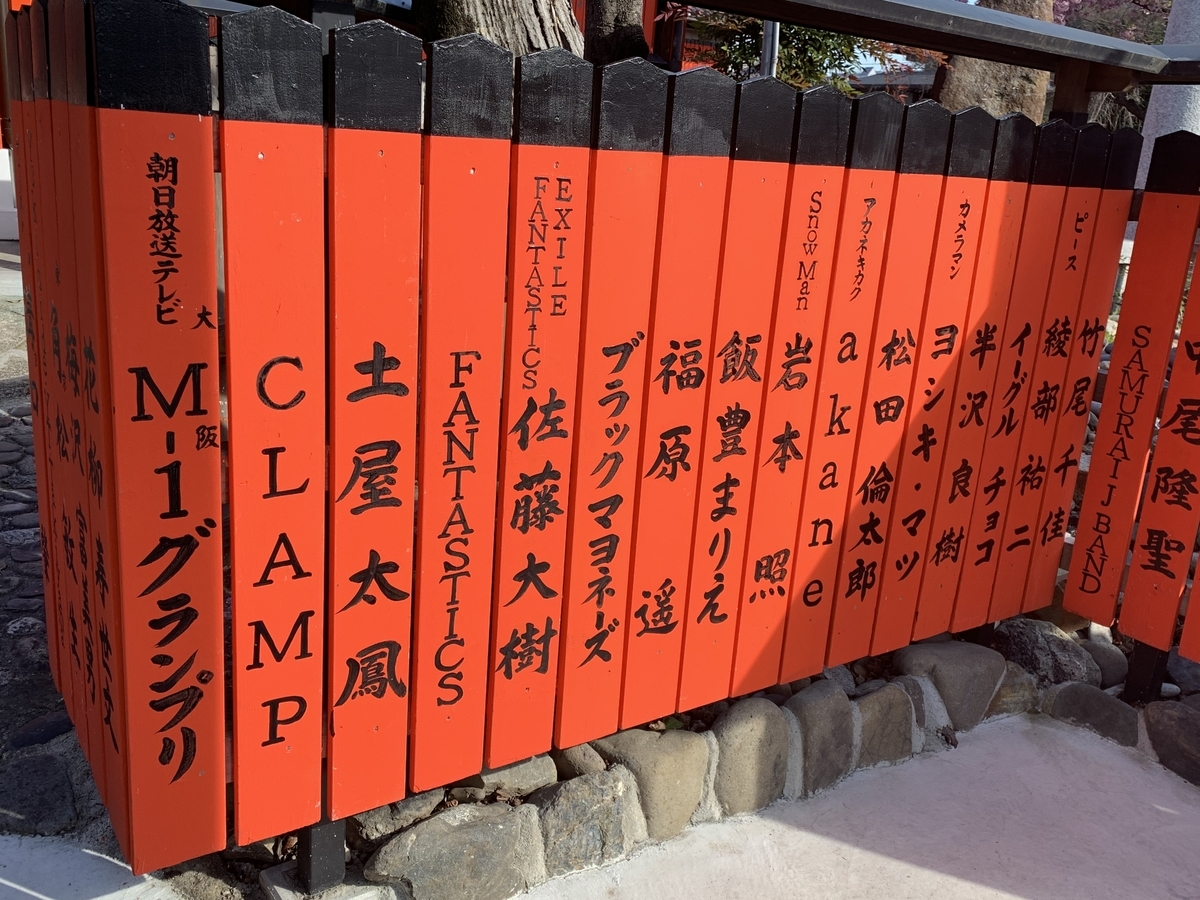 朝日放送テレビ
大阪
M-1グランプリ
CLAMP
土屋太鳳
FANTASTICS
EXILE
FANTASTICS
佐藤大樹
ブラックマヨネーズ
福原遥
飯豊まりえ
Snow Man
岩本照
アカネキカク
akane
松田倫太郎
カメラマン
ヨシキ・マツ
半沢良樹
イーグルチョコ
ピース
綾部祐二
竹尾千佳
SAMURAI J BAND
中尾隆聖
花柳寿世文
梅沢